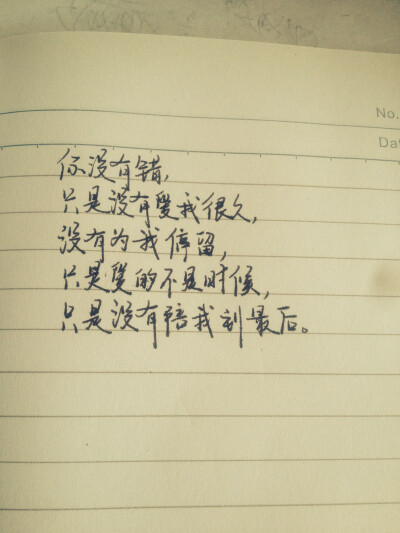 No.
Dat
你没有错，
只是没有爱我很久，
没有为我停留，
只是爱的不是时候，
只是没有陪我到最后。